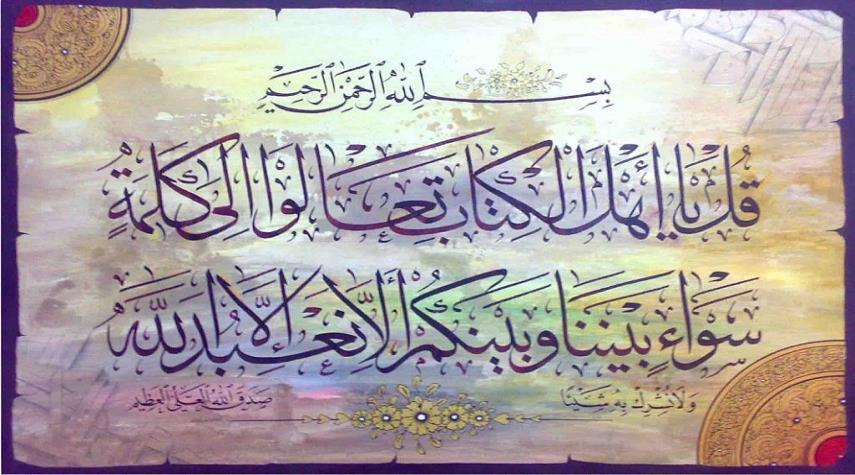 بِسْمِ اللهِ الرَّحْمٰنِ الرَّحِيمِ
قُلْ يَا أَهْلَ الْكِتَابِ تَعَالَوْا إِلَى كَلِمَةٍ
سَوَاءٍ بَيْنَنَا وَبَيْنَكُمْ أَلَّا نَعْبُدَ إِلَّا اللَّهَ
وَلَا نُشْرِكَ بِهِ شَيْئًا
صَدَقَ اللهُ الْعَلِيُّ الْعَظِيمُ